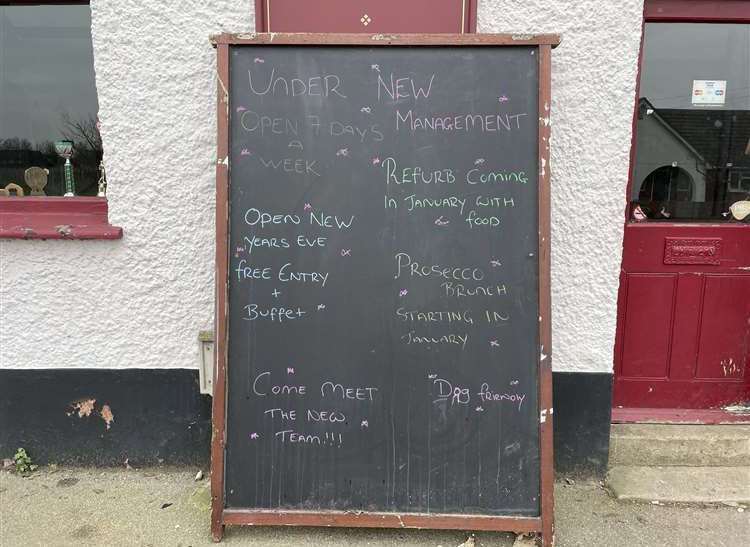 UNDER NEW
MANAGEMENT
OPEN 7 DAYS
A
WEEK
REFURB COMING
IN JANUARY WITH
FOOD
OPEN NEW
YEARS EVE
FREE ENTRY
+
BUFFET
PROSECCO
BRUNCH
STARTING IN
JANUARY
COME MEET
THE NEW
TEAM!!!
Dog friendly